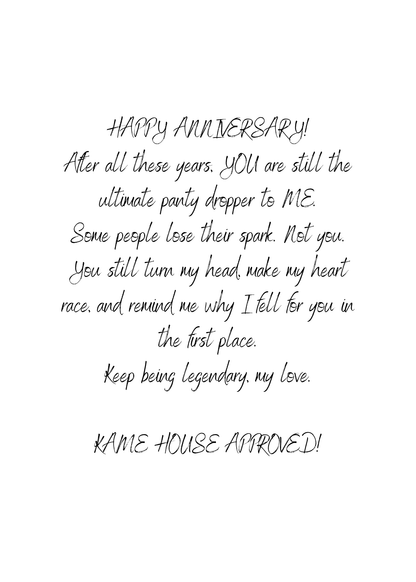 HAPPY ANNIVERSARY!
After all these years, YOU are still the
ultimate panty dropper to ME.
Some people lose their spark. Not you.
You still turn my head, make my heart
race, and remind me why I fell for you in
the first place.
Keep being legendary, my love.
KAME HOUSE APPROVED!